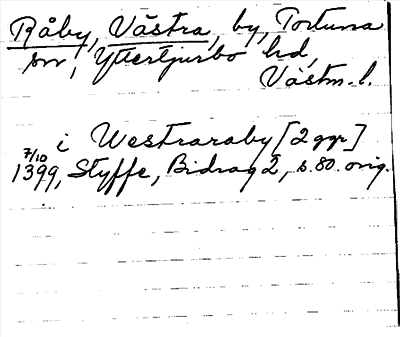 Råby, Västra, by, Tortuna
sn, Yttertjurbo hd,
Västm. l.
i Westraraby [2 ggr]
7/10
1399, Styffe, Bidrag 2, s. 80. orig.